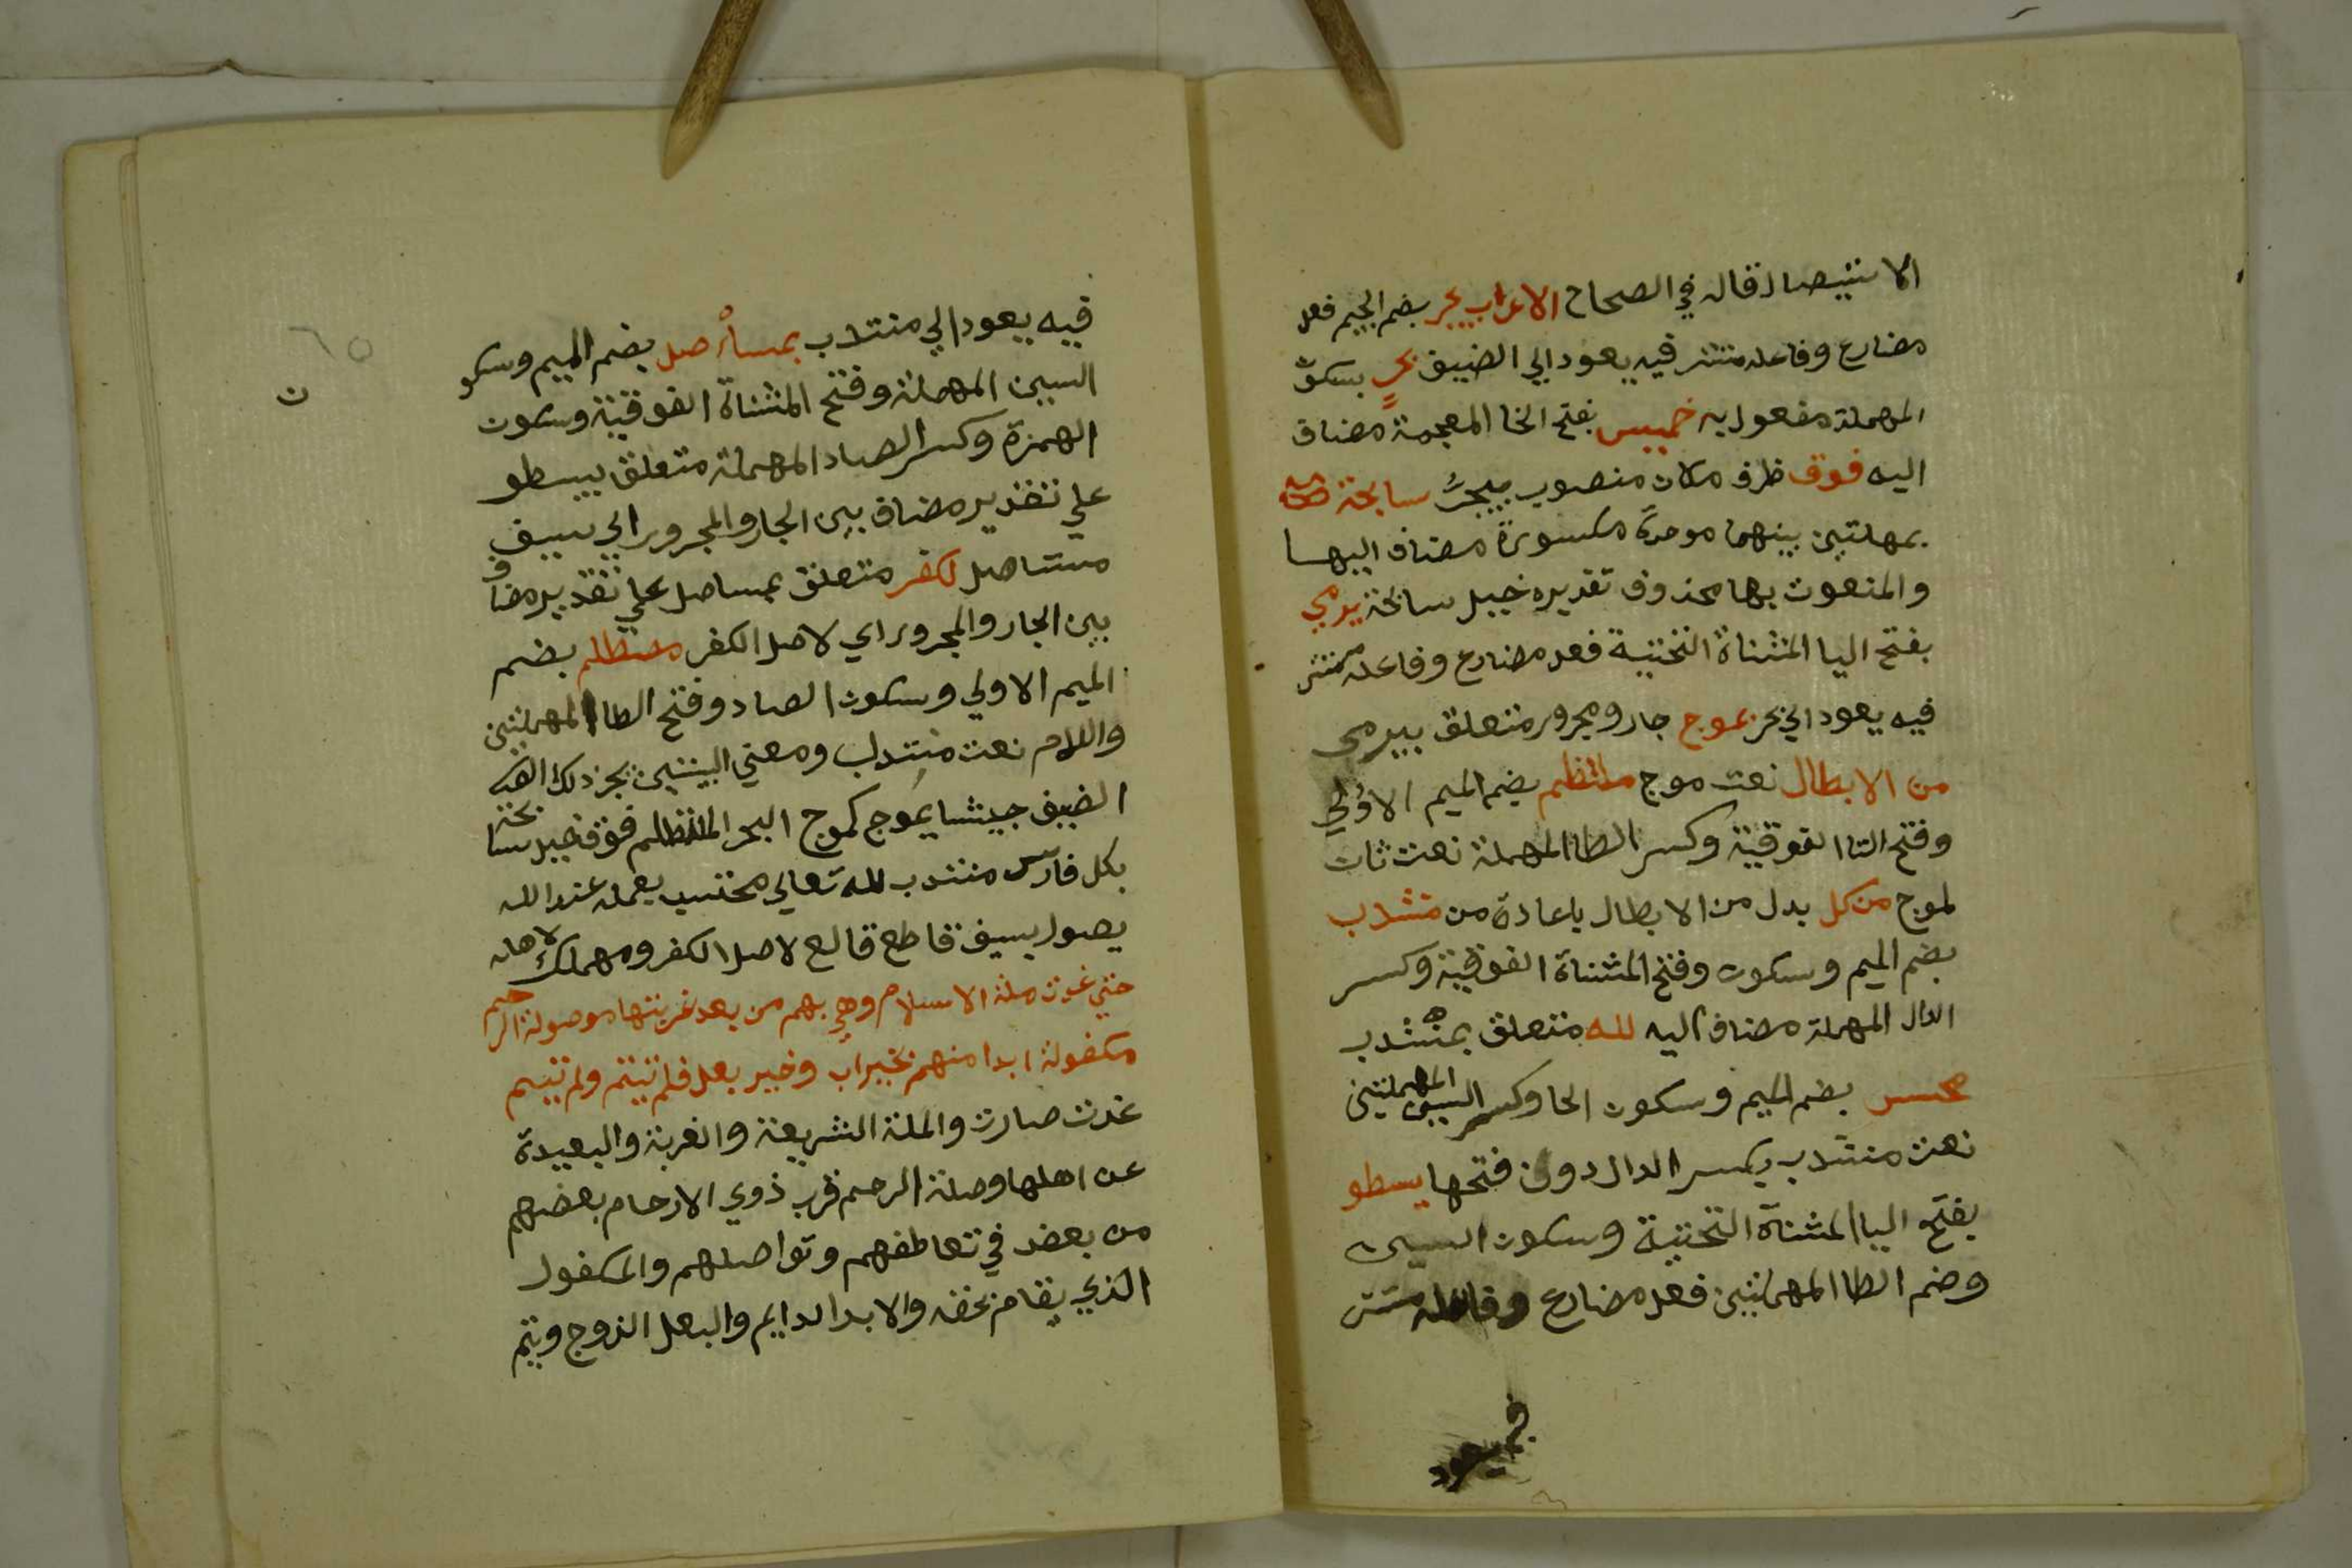 الاستيصال قاله في الصحاح الاعراب يجر بضم الجيم فعل
مضارع وفاعله مستتر فيه يعود الي الضيف بحر بسكون
المهملة مفعول به خميس بفتح الخا المعجمة مضاف
اليه فوق ظرف مكان منصوب بيجر سابحة
بمهملتين بينهما موحدة مكسورة مضاف اليها
والمنعوت بها محذوف تقديره خيل سابحة يرمي
بفتح اليا المثناة التحتية فعل مضارع وفاعله مستتر
فيه يعود الي بحر بموج جار ومجرور متعلق بيرمي
من الابطال نعت موج ملتطم بضم الميم الاولي
وفتح التا الفوقية وكسر الطا المهملة نعت ثان
لموج من كل بدل من الابطال باعادة من منتدب
بضم الميم وسكون وفتح المثناة الفوقية وكسر
الدال المهملة مضاف اليه لله متعلق بمنتدب
محتسب بضم الميم وسكون الحا وكسر السين المهملتين
نعت منتدب بكسر الدال دون فتحها يسطو
بفتح اليا المثناة التحتية وسكون السين
وضم الطا المهملتين فعل مضارع وفاعله مستتر
فيه يعود
فيه يعود الي منتدب بمستأصل بضم الميم وسكو
ن
السين المهملة وفتح المثناة الفوقية وسكون
الهمزة وكسر الصاد المهملة متعلق بيسطو
علي تقدير مضاف بين الجار والمجرور اي بسيف
مستاصل للكفر متعلق بمساصل علي تقدير مضاف
بين الجار والمجرور اي لاصل الكفر مصطلم بضم
الميم الاولي وسكون الصاد وفتح الطا المهملتين
واللام نعت منتدب ومعني البيتين يجر ذلك
الضيف جيشا يموج كموج البحر الملتطم فوق خيل سابحة
بكل فارس منتدب لله تعالي محتسب بعمله عند الله
يصول بسيف قاطع قالع لاصل الكفر ومهلك لاهله
حتي غدت ملة الاسلام وهي بهم من بعد غربتها موصولة الرحم
مكفولة ابدا منهم بخير اب وخير بعل فلم تيتم ولم تيم
غدت صارت والملة الشريعة والغربة والبعيدة
عن اهلها وصلة الرحم قرب ذوي الارحام بعضهم
من بعض في تعاطفهم وتواصلهم والمكفول
الذي يقام بحقه والابد الدايم والبعل الزوج ويتم